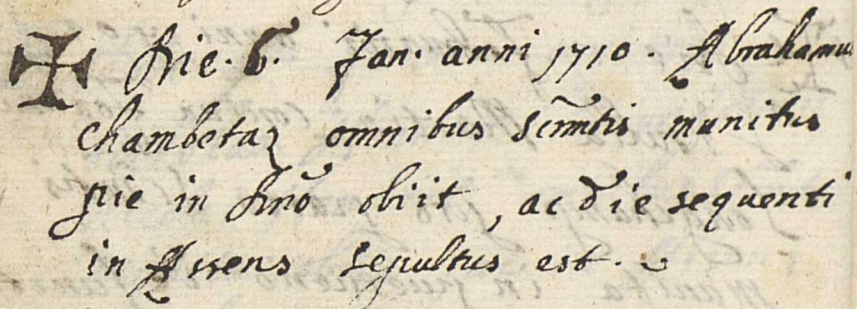 ✠ Die. 6. Jan. anni 1710. Abrahamus
chambetaz omnibus scrm̃tis munitus
pie in Dn̄o obiit, ac die sequenti
in Assens sepultus est.